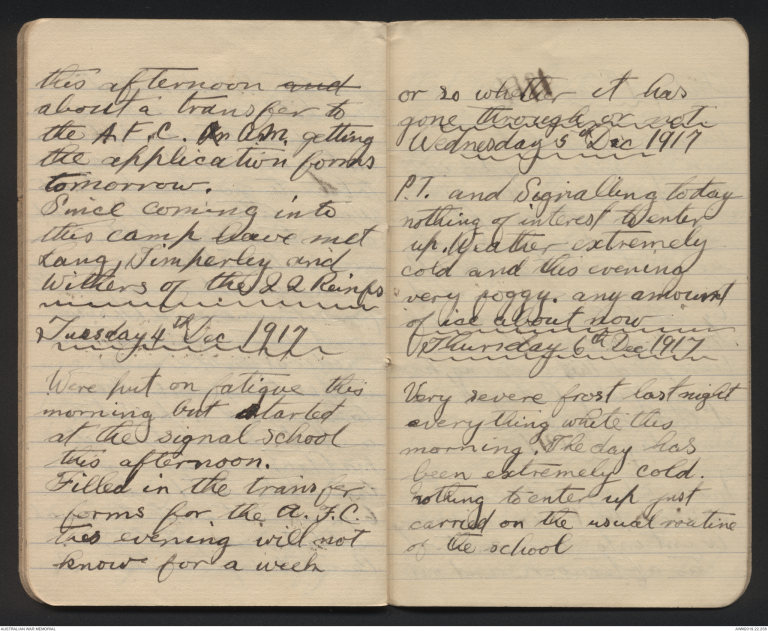 this afternoon and
about a transfer to
the A.F.C. Am getting
the application forms
tomorrow.
Since coming into
this camp have met
Lang, Timperley and
Withers of the 22 Reinfs
Tuesday 4th Dec 1917
Were put on fatigue this
morning but started
at the signal school
this afternoon.
Filled in the transfer
forms for the A.F.C.
this evening will not
know for a week
or so whether it has
gone through or not
Wednesday 5th Dec 1917
P.T. and Signalling today
nothing of interest to enter
up. Weather extremely
cold and this evening
very foggy. any amount
of ice about now
Thursday 6th Dec 1917
Very severe frost last night
everything white this
morning. The day has
been extremely cold.
nothing to enter up just
carried on the usual routine
of the school
AUSTRALIAN WAR MEMORIAL